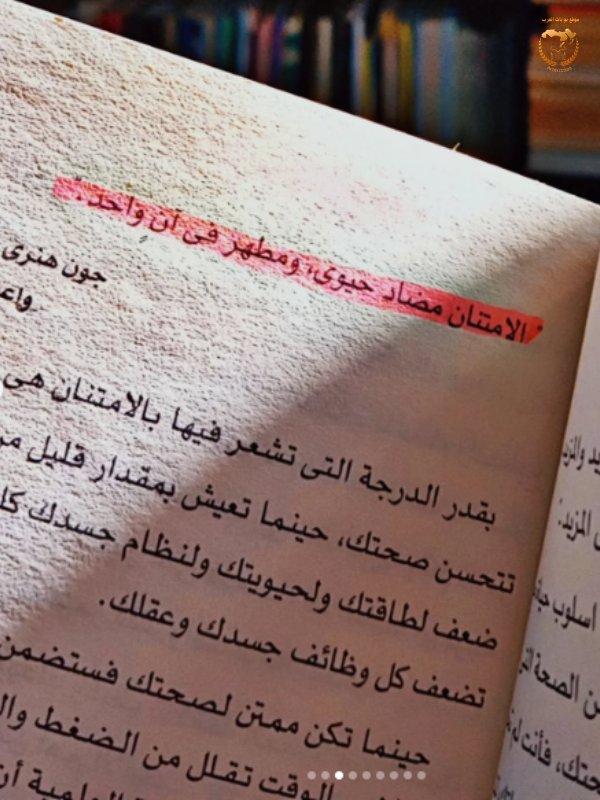 موقع بوابات العرب
"الامتنان مضاد حيوى، ومطهر فى آن واحد".
جون هنرى
واعـ
بقدر الدرجة التى تشعر فيها بالامتنان هى
تتحسن صحتك، حينما تعيش بمقدار قليل من
ضعف لطاقتك ولحيويتك ولنظام جسدك كا
تضعف كل وظائف جسدك وعقلك.
حينما تكن ممتن لصحتك فستضمن
الوقت تقلل من الضغط وال
يد والمزيد
المزيد".
اسلوب حياة
من الصحة
حتك، فأنت لم